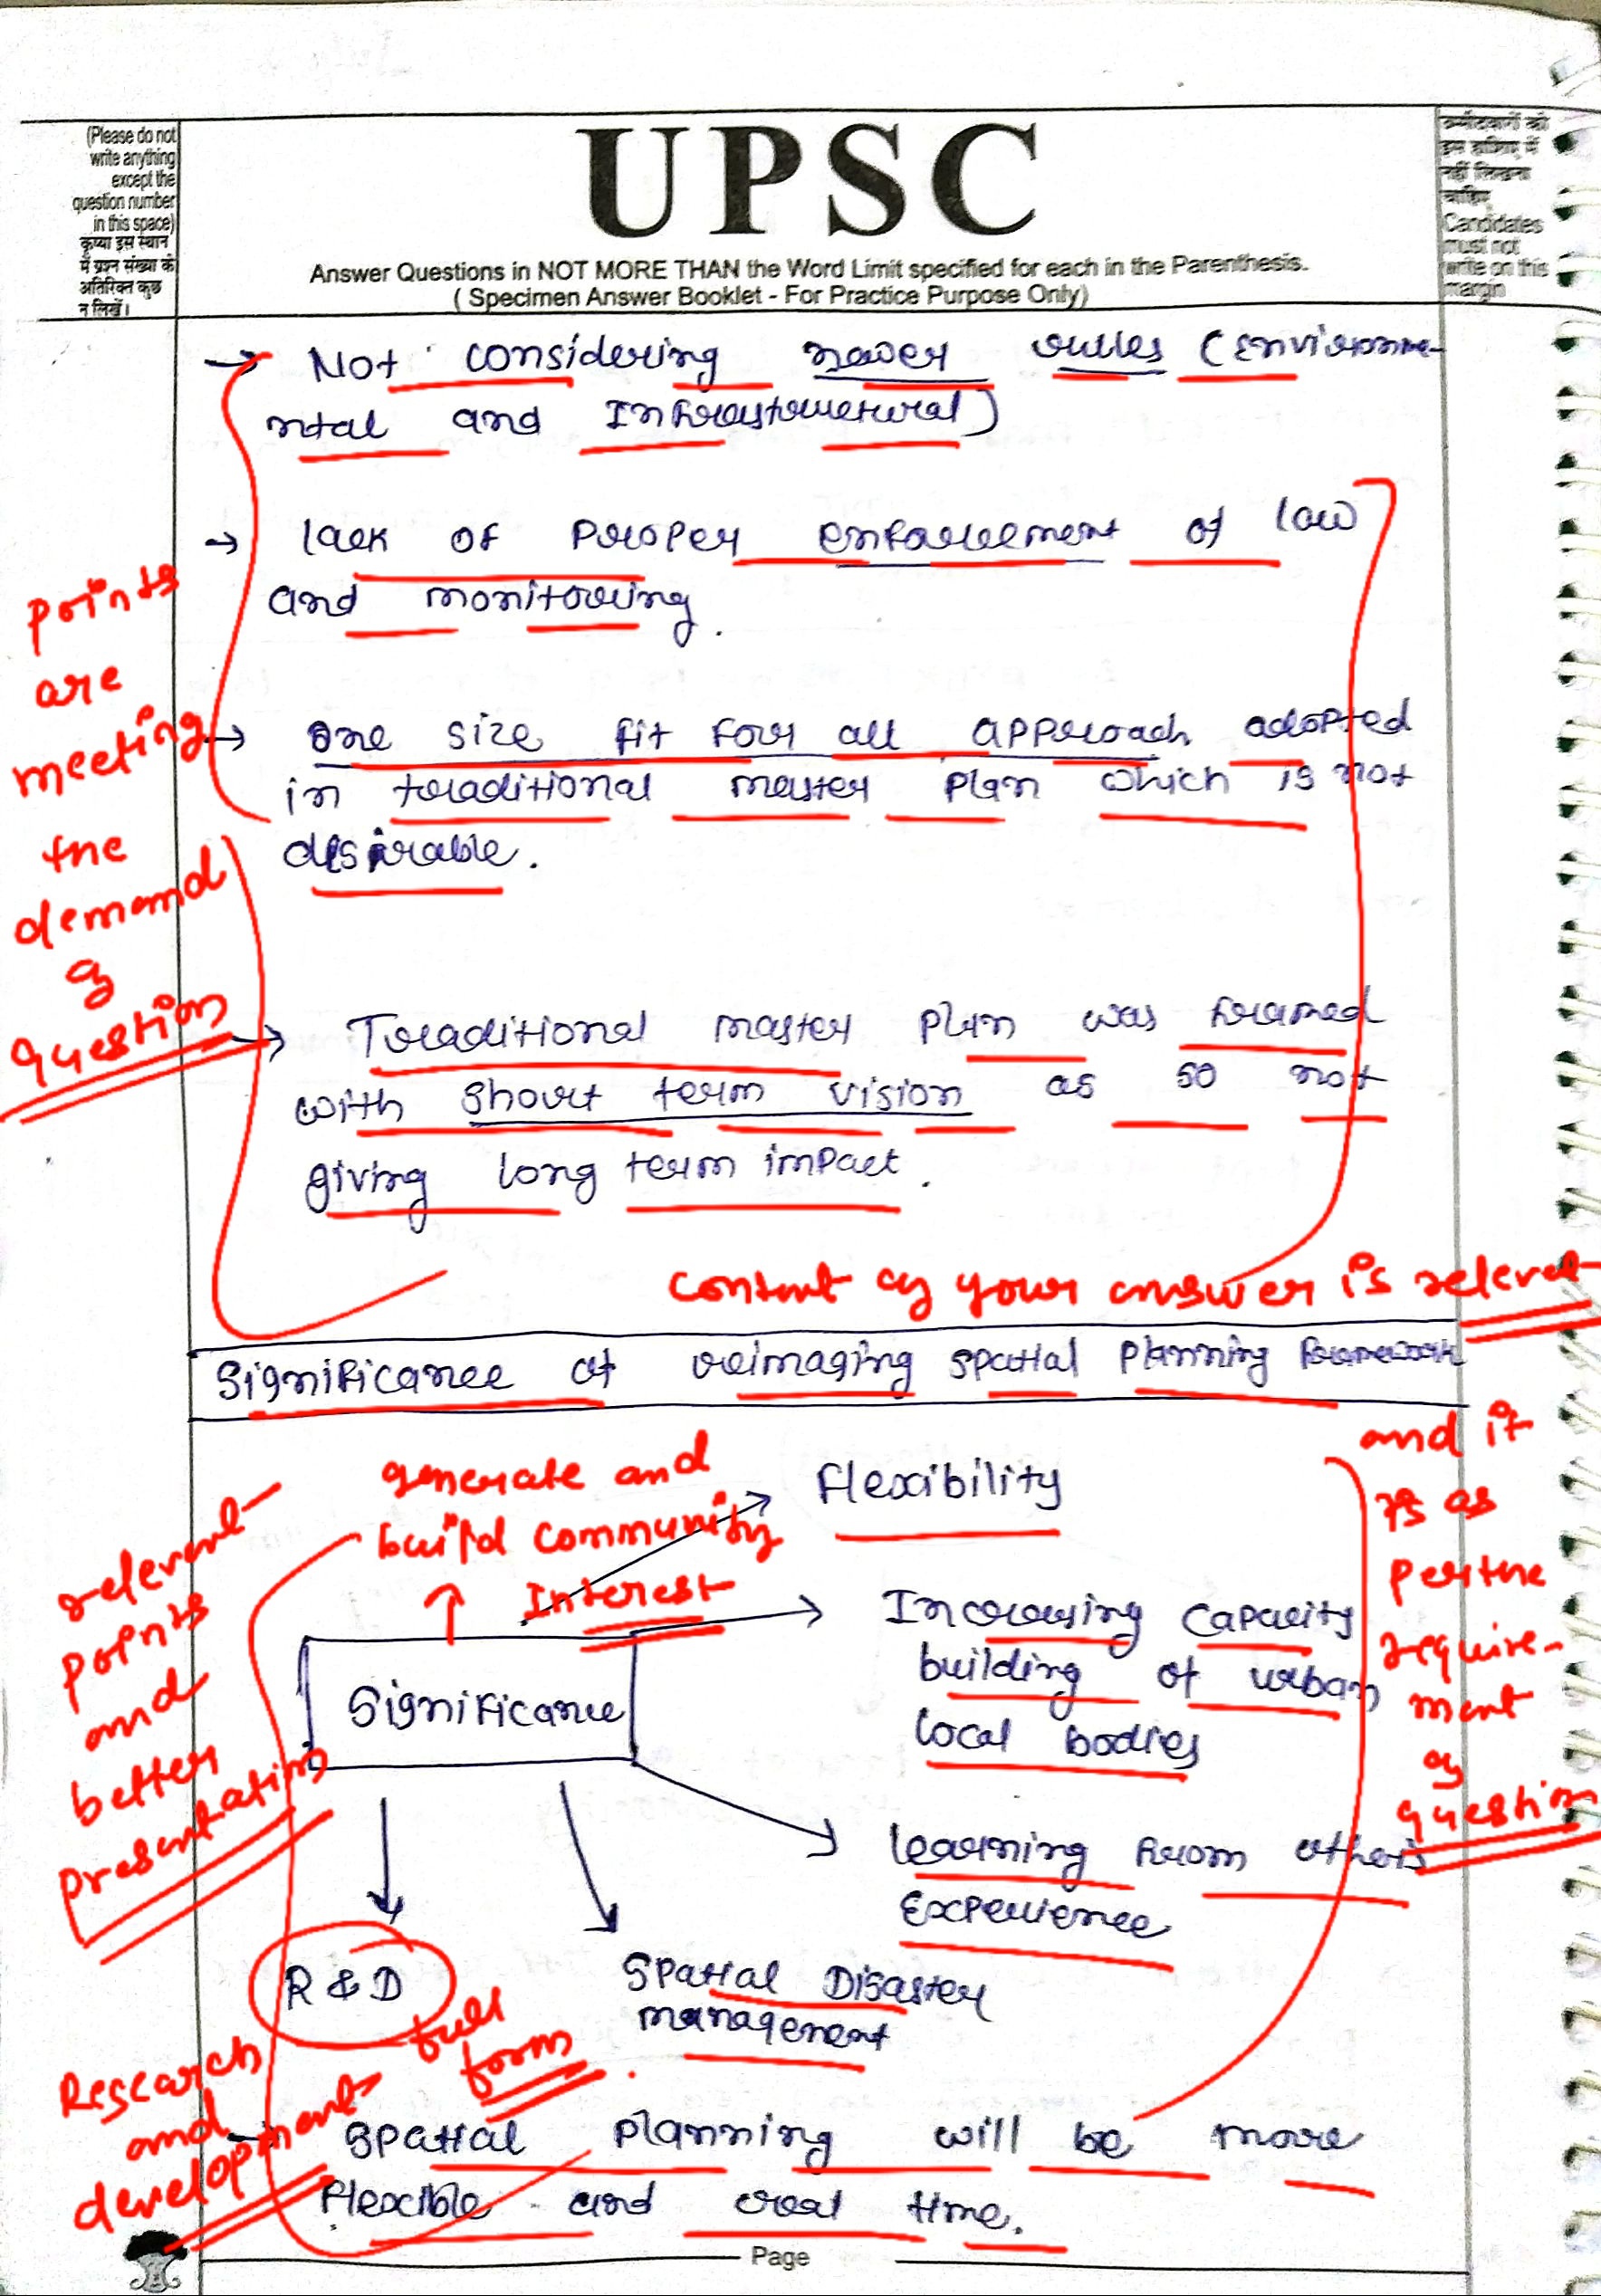 (Please do not
write anything
except the
question number
in this space)
कृप्या इस स्थान
में प्रश्न संख्या के
अतिरिक्त कुछ
न लिखें।
UPSC
Answer Questions in NOT MORE THAN the Word Limit specified for each in the Parenthesis.
( Specimen Answer Booklet - For Practice Purpose Only)
उम्मीदवारों को
इस हाशिए में
नहीं लिखना
चाहिए
Candidates
must not
write on this
margin
→ Not considering newer rules (Environme-
ntal and Infrastructural)
→ lack of Proper enforcement of law
and monitoring.
→ One size fit for all approach adopted
in traditional master plan which is not
desirable.
→ Traditional master plan was framed
with short term vision as so not
giving long term impact.
points
are
meeting
the
demand
of
question
content of your answer is relevant
and it
is as
per the
require-
ment
of
question
Significance of reimaging spatial planning framework
generate and
build community
Interest
↑
Significance
→ Flexibility
→ Increasing Capacity
building of urban
local bodies
→ learning from others
Experience
Spatial Disaster
management
R & D
full
form
Research
and
development
relevant
points
and
better
presentation
→ Spatial planning will be more
flexible and real time.
Page